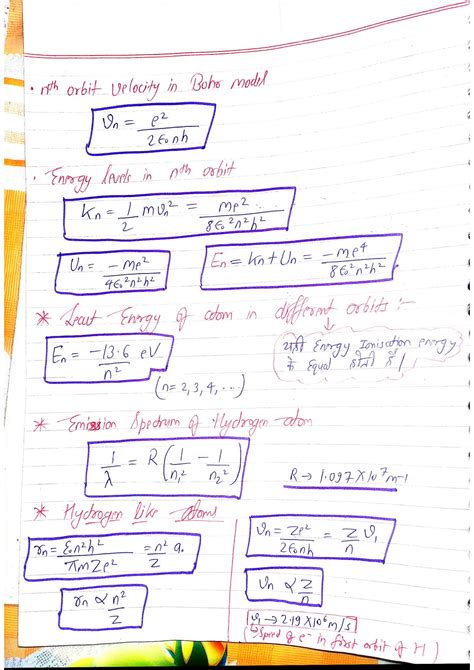 • nth orbit velocity in Bohr model
vn = e²/2ε₀nh
• Energy levels in nth orbit
Kn = 1/2 mvn² = me²../8ε₀²n²h²
Un = -me²/4ε₀²n²h²
En = Kn + Un = -me⁴/8ε₀²n²h²
* Least Energy of atom in different orbits :-
En = -13.6/n² eV
(n = 2, 3, 4, ...)
यही Energy Ionisation energy
के Equal होती है।
* Emission Spectrum of Hydrogen atom
1/λ = R(1/n₁² - 1/n₂²)
R → 1.097×10⁷m⁻¹
* Hydrogen like Atoms
rn = ε₀n²h²/πmZe² = n²/Z a₀
rn ∝ n²/Z
vn = Ze²/2ε₀nh = Z/n v₁
vn ∝ Z/n
v₁ → 2.19×10⁶m/s
(→ Speed of e⁻ in first orbit of H)